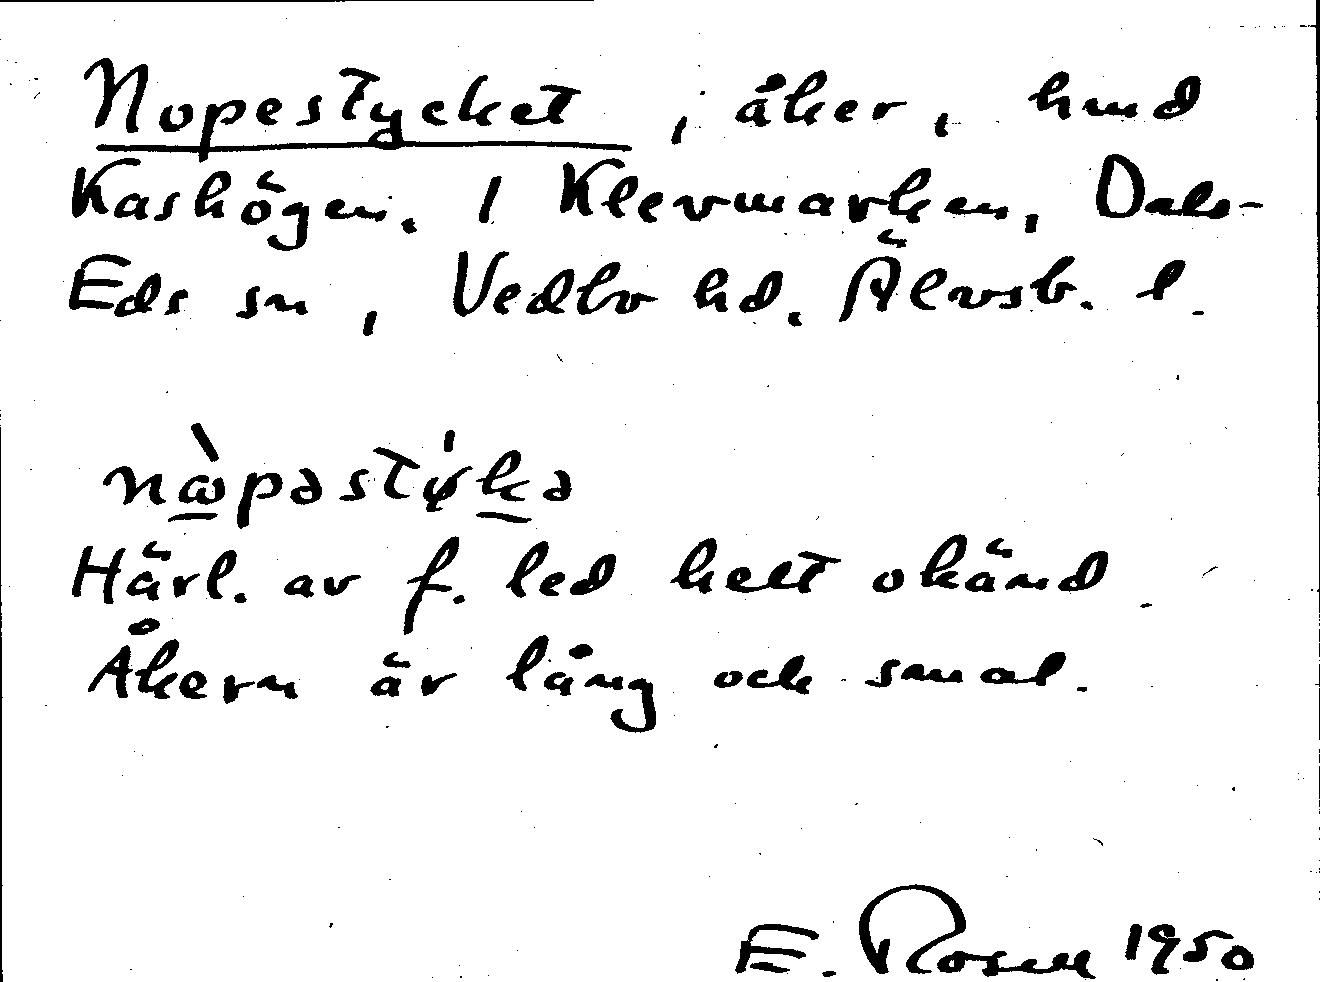 Nopestycket, åker, hmd
Kashögen. 1 Klevmarken, Dals-
Eds sn, Vedbo hd. Älvsb. l.
nɷ̀pəstýkə
Härl. av f. led helt okänd.
Åkern är lång och smal.
E. Rosell 1950